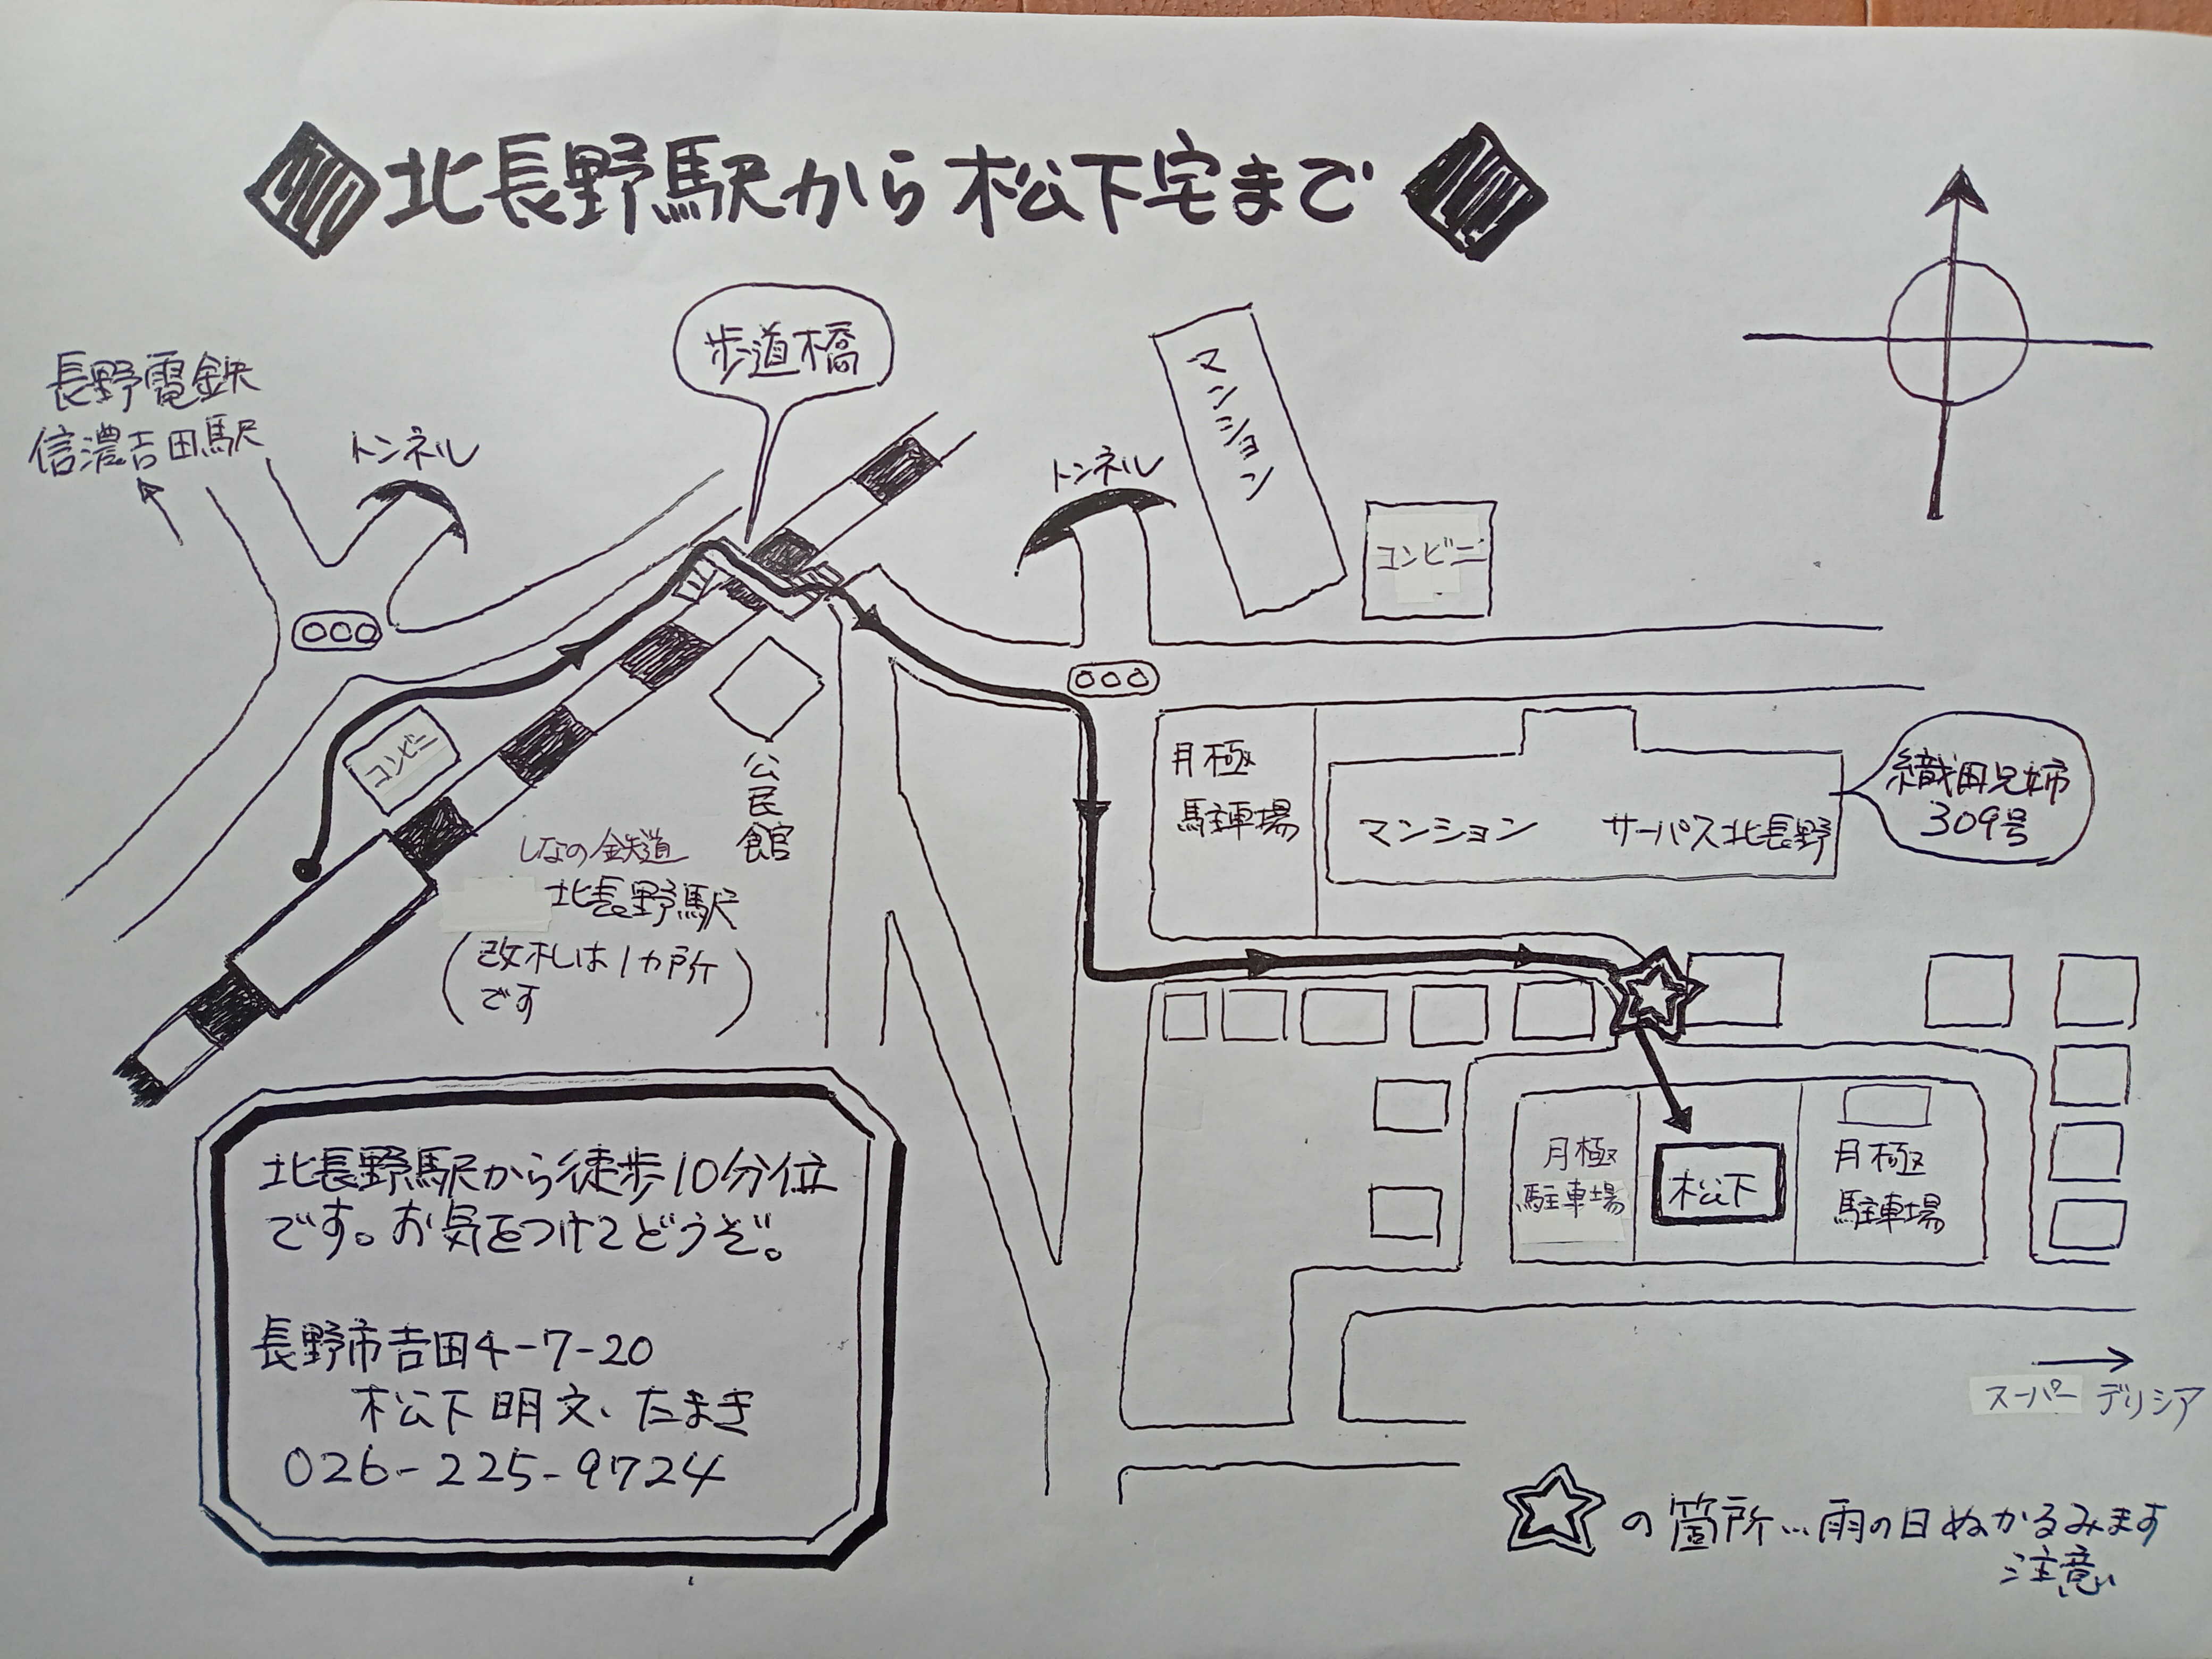 北長野駅から松下宅まで
長野電鉄
信濃吉田駅
トンネル
歩道橋
マンション
トンネル
コンビニ
コンビニ
公民館
しなの鉄道
北長野駅
(改札は1カ所
です)
月極
駐車場
マンション サーパス北長野
織田兄姉
309号
月極
駐車場
松下
月極
駐車場
北長野駅から徒歩10分位
です。お気をつけてどうぞ。
長野市吉田4-7-20
松下明文、たまき
026-225-9724
スーパー デリシア
☆の箇所…雨の日ぬかるみます
注意